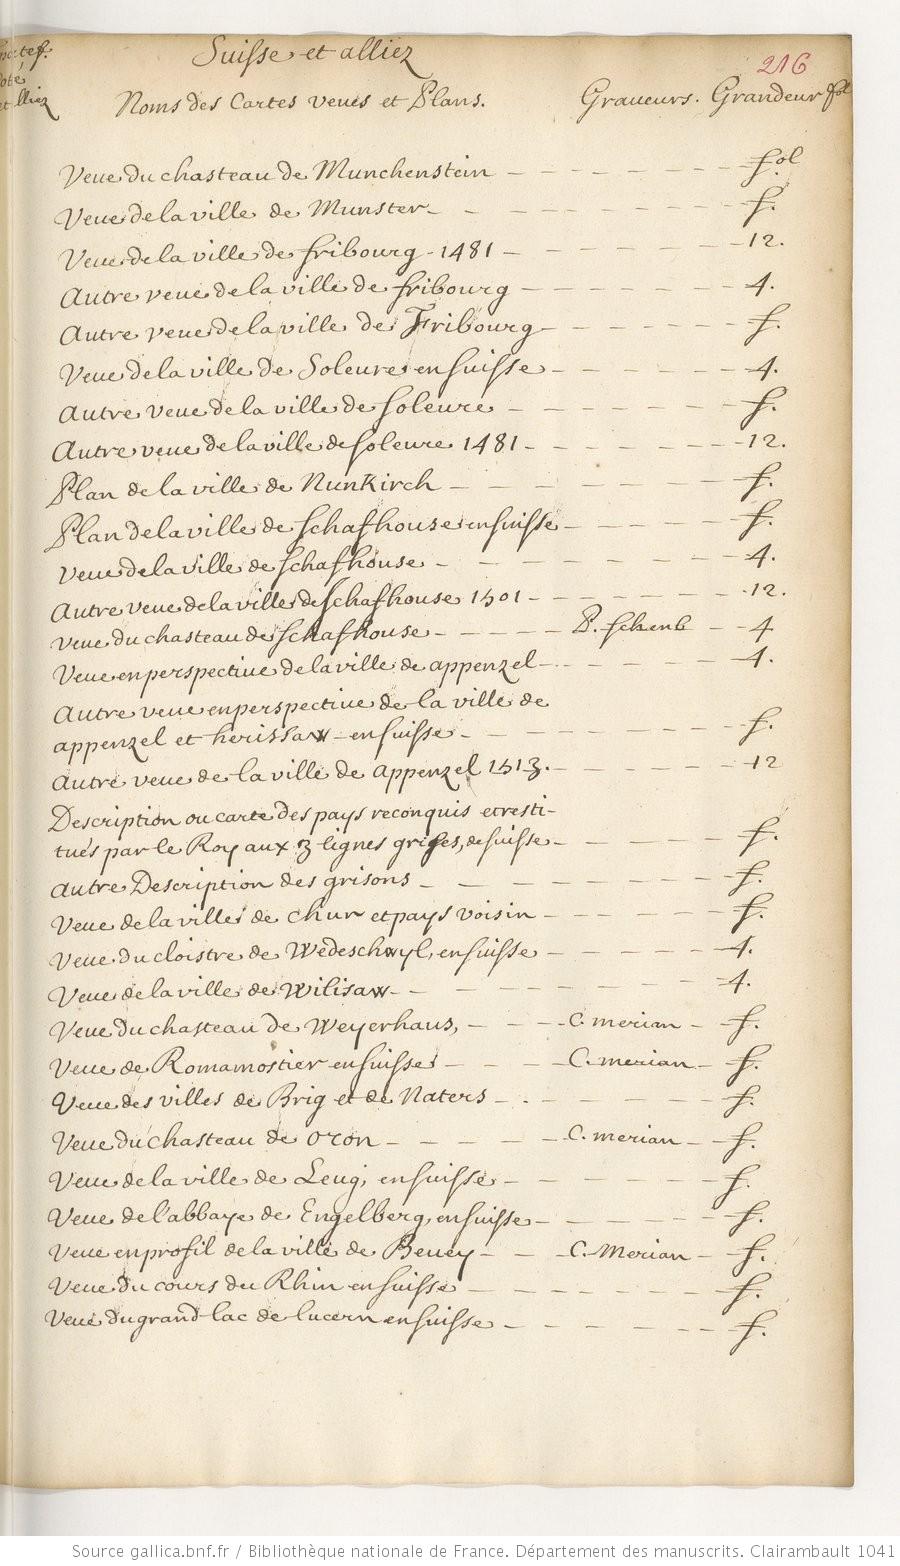 Suisse et alliez
216
Noms des Cartes veues et Plans. Graveurs. Grandeur fol
Veue du chasteau de Munchenstein - - - - - - - f.ol
Veue de la ville de Munster - - - - - - - f.
Veue de la ville de fribourg - 1481 - - - - - - - 12.
Autre veue de la ville de fribourg - - - - - - - 4.
Autre veue de la ville de Fribourg - - - - - - f.
Veue de la ville de Soleure en suisse - - - - - - 4.
Autre veue de la ville de soleure - - - - - - - f.
Autre veue de la ville de soleure 1481 - - - - - - - 12.
Plan de la ville de Nunkirch - - - - - - - f.
Plan de la ville de schafhouse en suisse - - - - - f.
Veue de la ville de schafhouse - - - - - - - - 4.
Autre veue de la ville de schafhouse 1501 - - - - - - - 12.
veue du chasteau de schafhouse - - - - - P. schenb - - 4
Veue en perspective de la ville de appenzel - - - - - - 4.
Autre veue en perspective de la ville de
appenzel et herissaw - en suisse - - - - - - - f.
Autre veue de la ville de appenzel 1513. - - - - - - 12
Description ou carte des pays reconquis et resti-
tués par le Roy aux 3 lignes grises, de suisse - - - - - f.
Autre Description des grisons - - - - - - - - f.
Veue de la ville de Chur et pays voisin - - - - - - f.
Veue du cloistre de Wedeschwyl, en suisse - - - - - - 4.
Veue de la ville de Wilisaw - - - - - - - - 4.
Veue du chasteau de Weyerhaus, - - - C. merian - f.
Veue de Romamostier en suisse - - - C. merian - f.
Veue des villes de Brig et de Naters - - - - - - f.
Veue du chasteau de oron - - - - - C. merian - f.
Veue de la ville de Leug, en suisse - - - - - - f.
Veue de l'abbaye de Engelberg, en suisse - - - - - - f.
Veue en profil de la ville de Bevey - - - C. Merian - f.
Veue du cours du Rhin en suisse - - - - - - - f.
Veue du grand lac de lucern en suisse - - - - - - f.
Source gallica.bnf.fr / Bibliothèque nationale de France. Département des manuscrits. Clairambault 1041